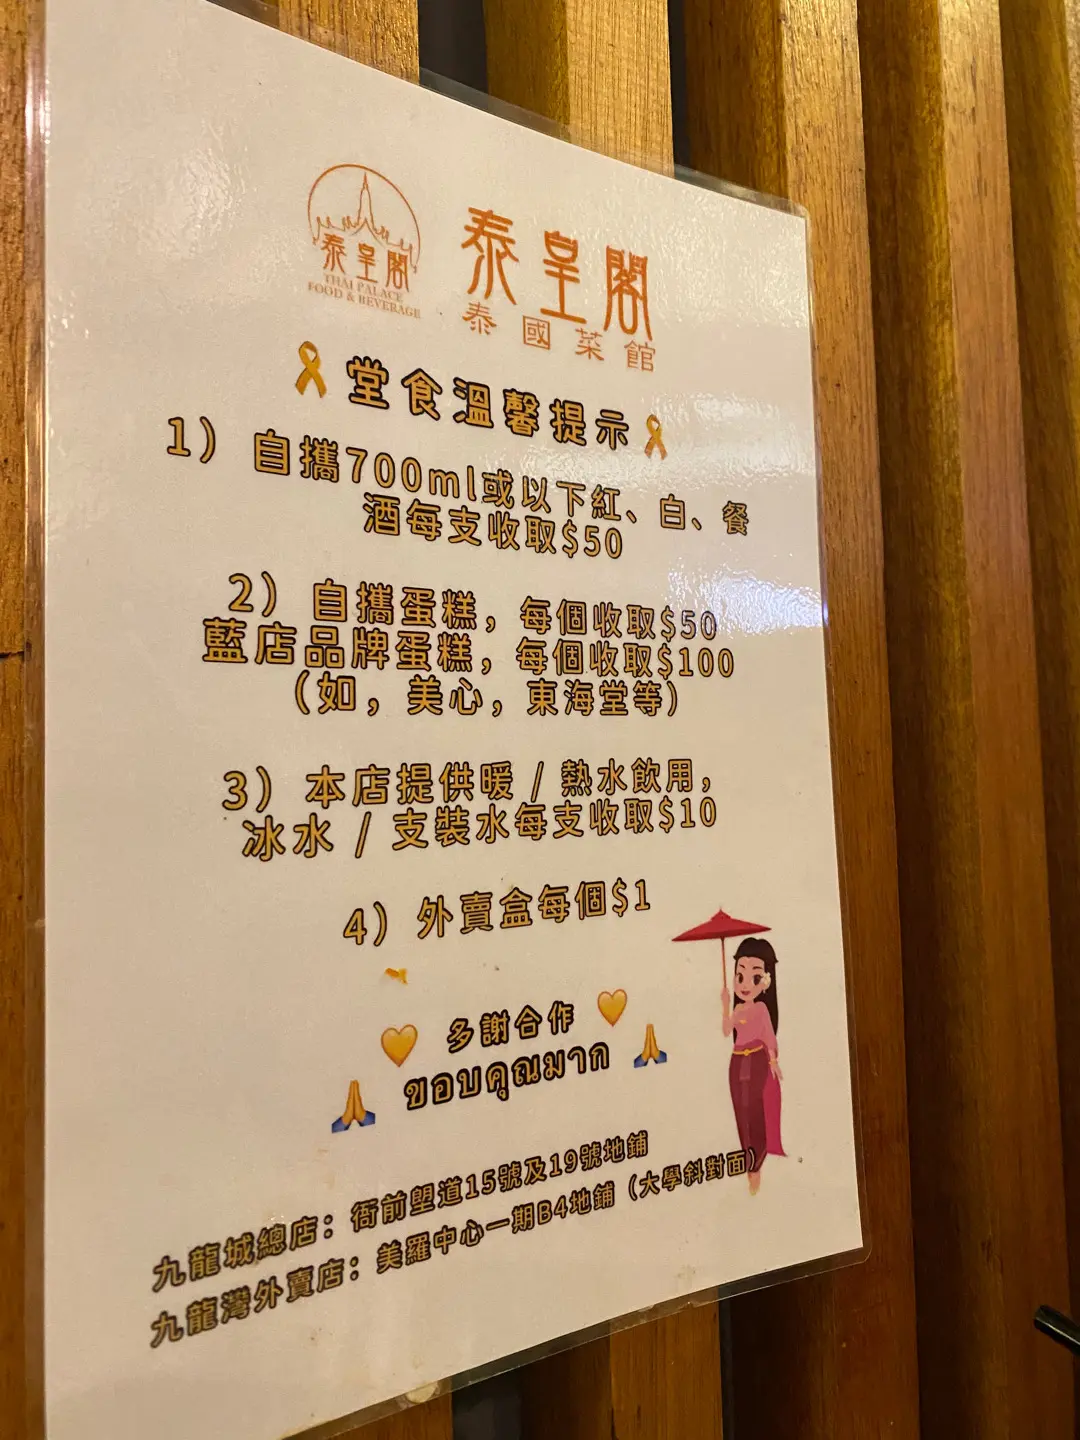 泰皇閣
THAI PALACE
FOOD & BEVERAGE
泰皇閣
泰國菜館
堂食溫馨提示
1）自攜700ml或以下紅、白、餐
酒每支收取$50
2）自攜蛋糕，每個收取$50
藍店品牌蛋糕，每個收取$100
（如，美心，東海堂等）
3）本店提供暖 / 熱水飲用，
冰水 / 支裝水每支收取$10
4）外賣盒每個$1
多謝合作
ขอบคุณมาก
九龍城總店：衙前塱道15號及19號地鋪
九龍灣外賣店：美羅中心一期B4地鋪（大學斜對面）